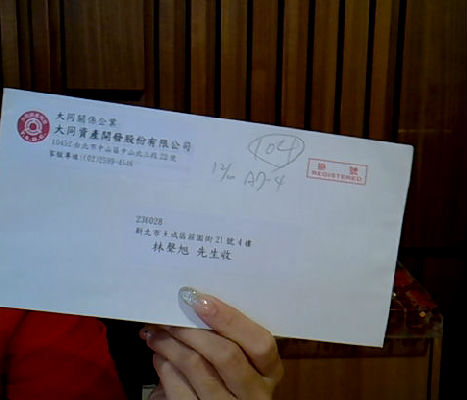 大同關係企業
大同資產開發股份有限公司
10452台北市中山區中山北路三段22號
客服專線:(02)2599-4546
104
12/20 A7-4
掛 號
REGISTERED
236028
新北市土城區莊園街21號4樓
林聲旭 先生收